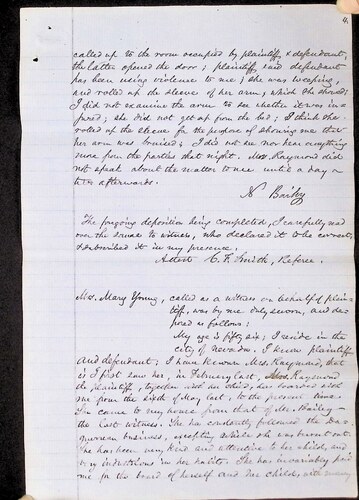 4.
called up to the room occupied by plaintiff, & defendant,
the latter opened the door; plaintiff, said defendant
has been using violence to me; she was weeping,
and rolled up the sleeve of her arm, which she showed;
I did not examine the arm to see whether it was in-
jured; she did not get up from the bed; I think she
rolled up the sleeve for the purpose of showing me that
her arm was bruised; I did not see nor hear anything
more from the parties that night. Mrs. Raymond did
not speak about the matter to me until a day or
two afterwards.
Bailey
The foregoing deposition being completed, I carefully read
over the same to witness, who declared it to be correct,
& subscribed it in my presence.
Attest C. F. Smith, Referee.
Mrs. Mary Young, called as a witness on behalf of plain-
tiff, was by me duly sworn, and de-
posed as follows:
My age is fifty six; I reside in the
city of Nevada. I know plaintiff
And defendant; I have known Mrs. Raymond, that
is I first saw her, in February last. Mrs. Raymond
the plaintiff, together with her child, has boarded with
me from the sixth of May last, to the present time.
She came to my house from that of Mr. Bailey—
the last witness. She has constantly followed the Da-
guerrean business, excepting while she was burnt out.
She has been very kind and attentive to her child, and
very industrious in her habits. She has invariably paid
me for the board of herself and her child, with money